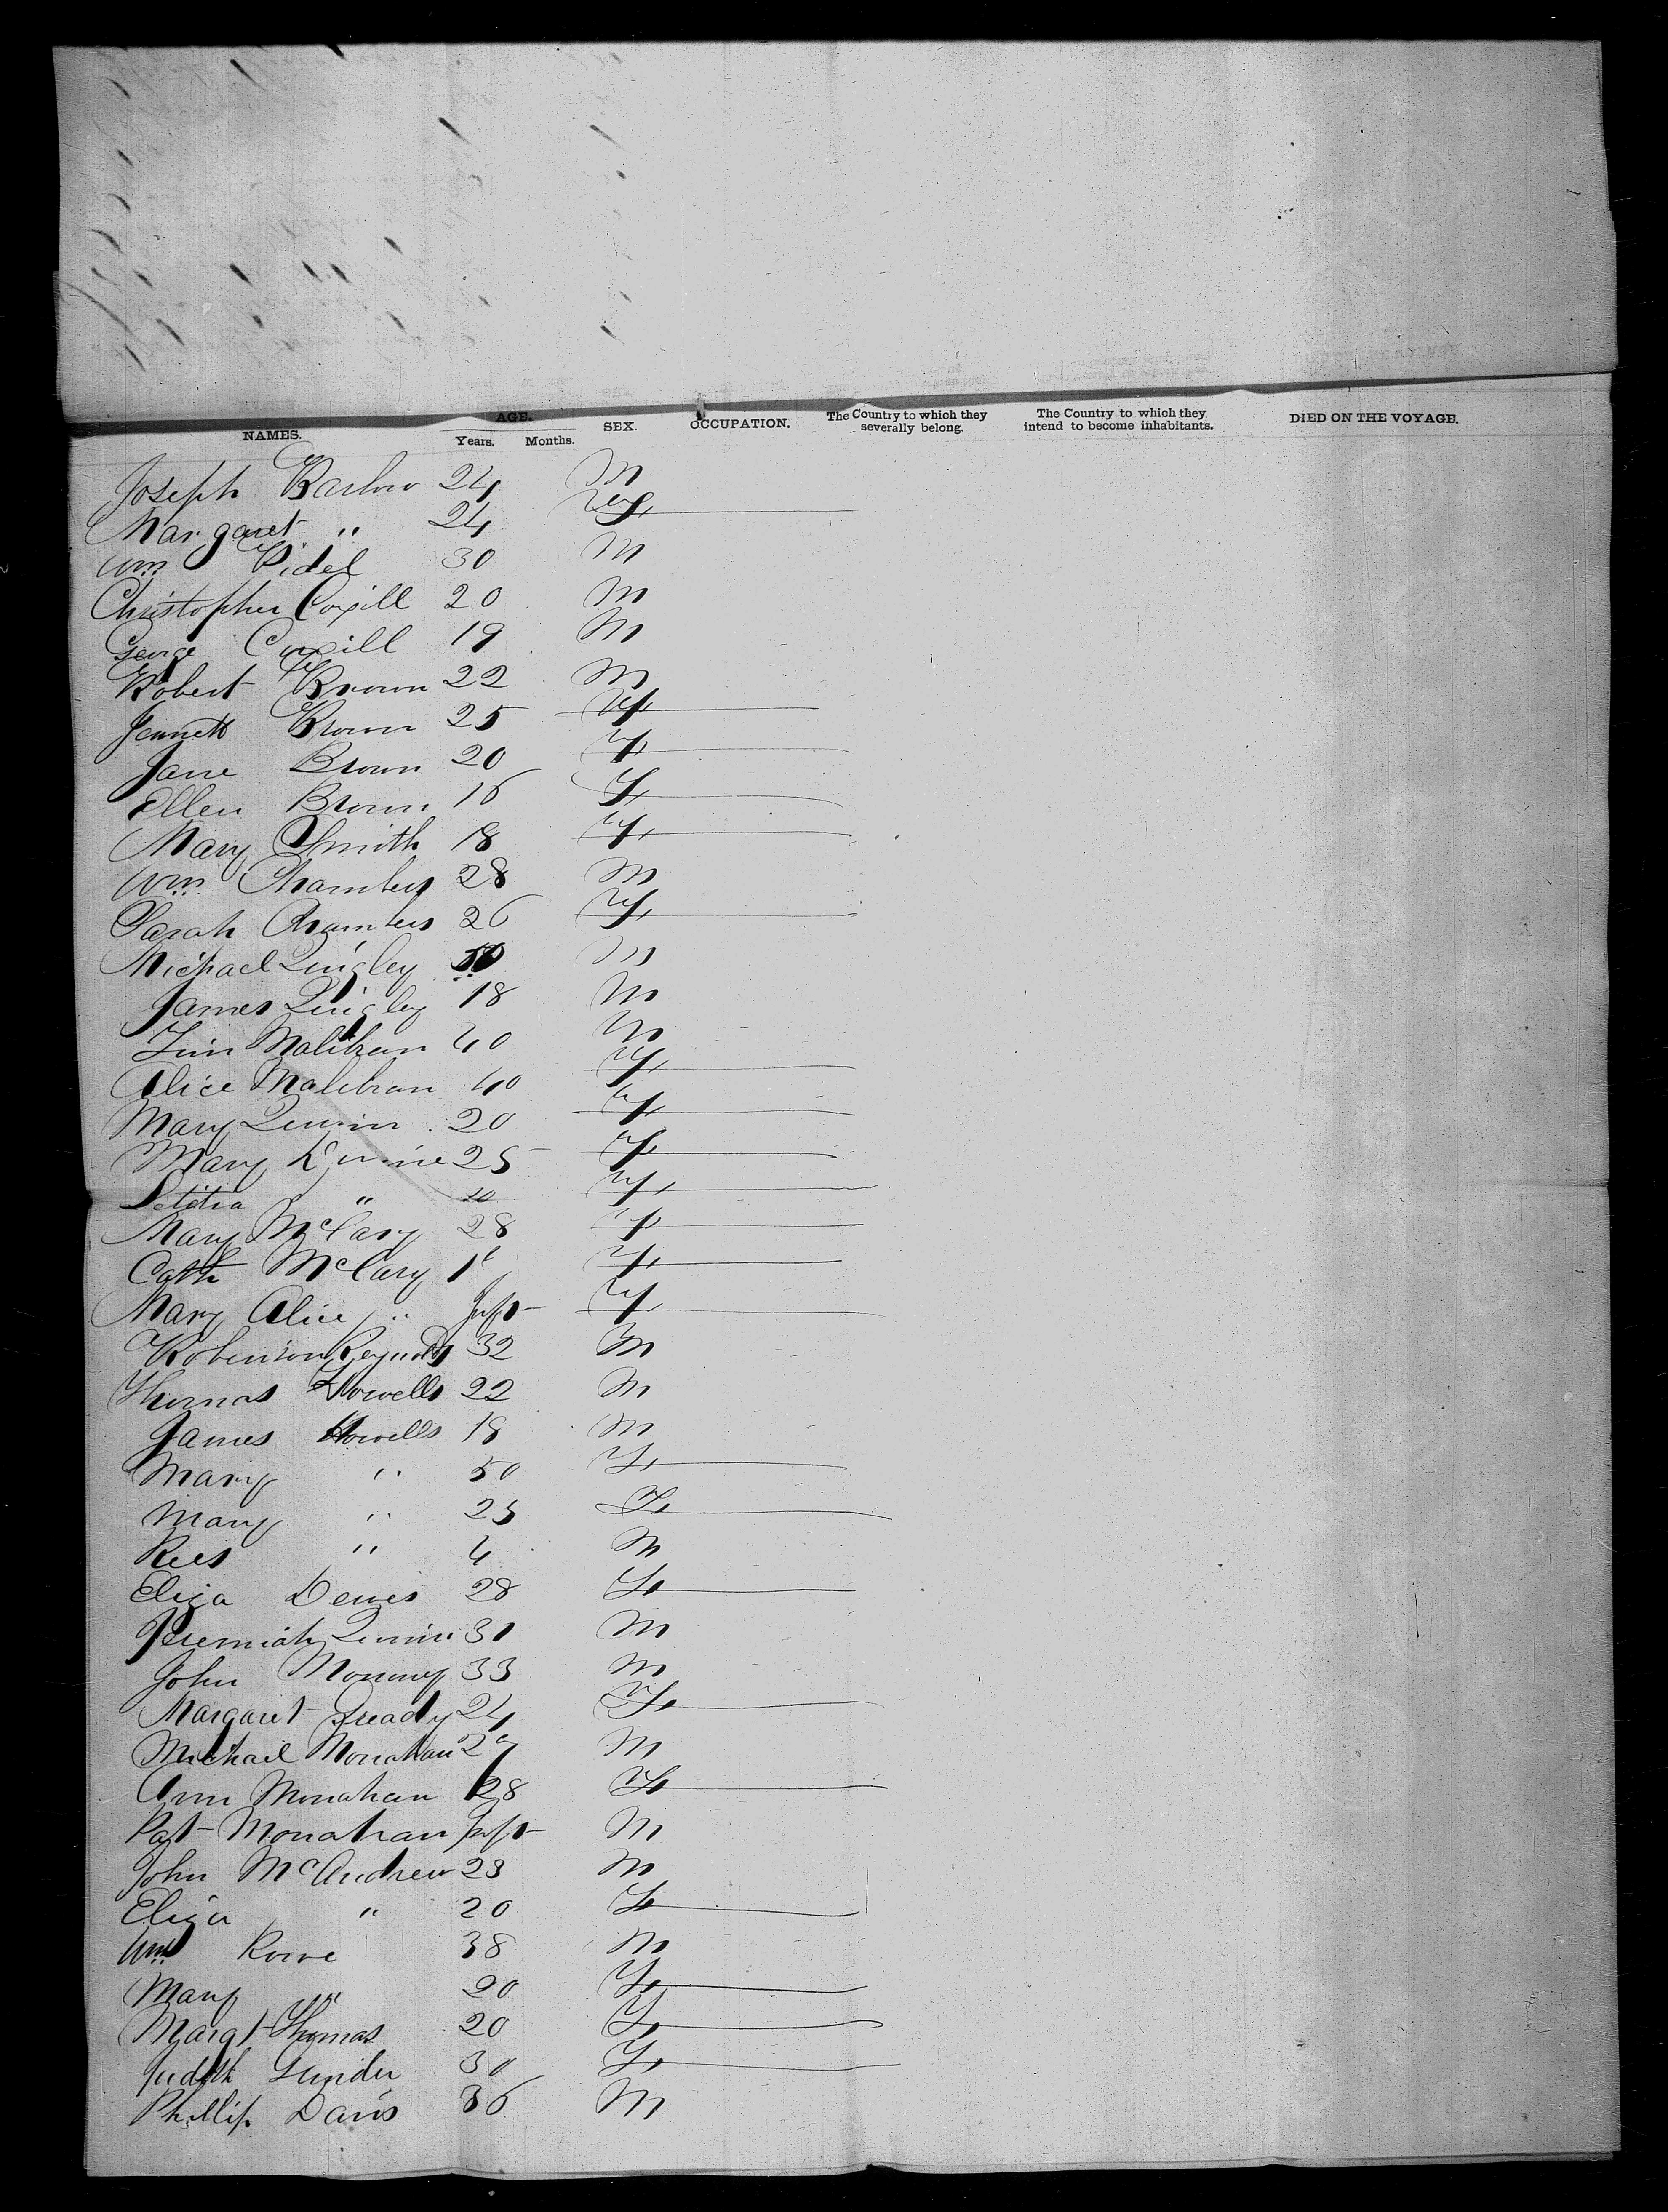 NAMES. AGE. Years. Months. SEX. OCCUPATION. The Country to which they severally belong. The Country to which they intend to become inhabitants. DIED ON THE VOYAGE.
Joseph Barlow 24 M
Margaret " 24 F
Wm Pidel 30 M
Christopher Coxill 20 M
George Coxill 19 M
Robert Brown 22 M
Jennett Brown 25 F
Jane Brown 20 F
Ellen Brown 16 F
Mary Smith 18 F
Wm Chambers 28 M
Sarah Chambers 26 F
Michael Quigley M
James Quigley 18 M
Tim Malibran 40 M
Alice Malibran 40 F
Mary Quinn 20 F
Mary 25 F
Letitia " 20 F
Mary McCary 28 F
Cath McCary F
Mary Alice " Inft F
Robinson Reynolds 32 M
Thomas Howells 22 M
James Howells 18 M
Mary " 50 F
Mary " 25 F
Rees " 4 M
Eliza Dewes 28 F
Jeremiah Quinn 31 M
John 33 M
Margaret 24 F
Michael Monahan 27 M
Ann Monahan 28 F
Pat Monahan Inft M
John McAndrew 23 M
Eliza " 20 F
Wm Rowe 38 M
Mary " 20 F
Margt Thomas 20 F
Judith 30 F
Phillip Davis 36 M